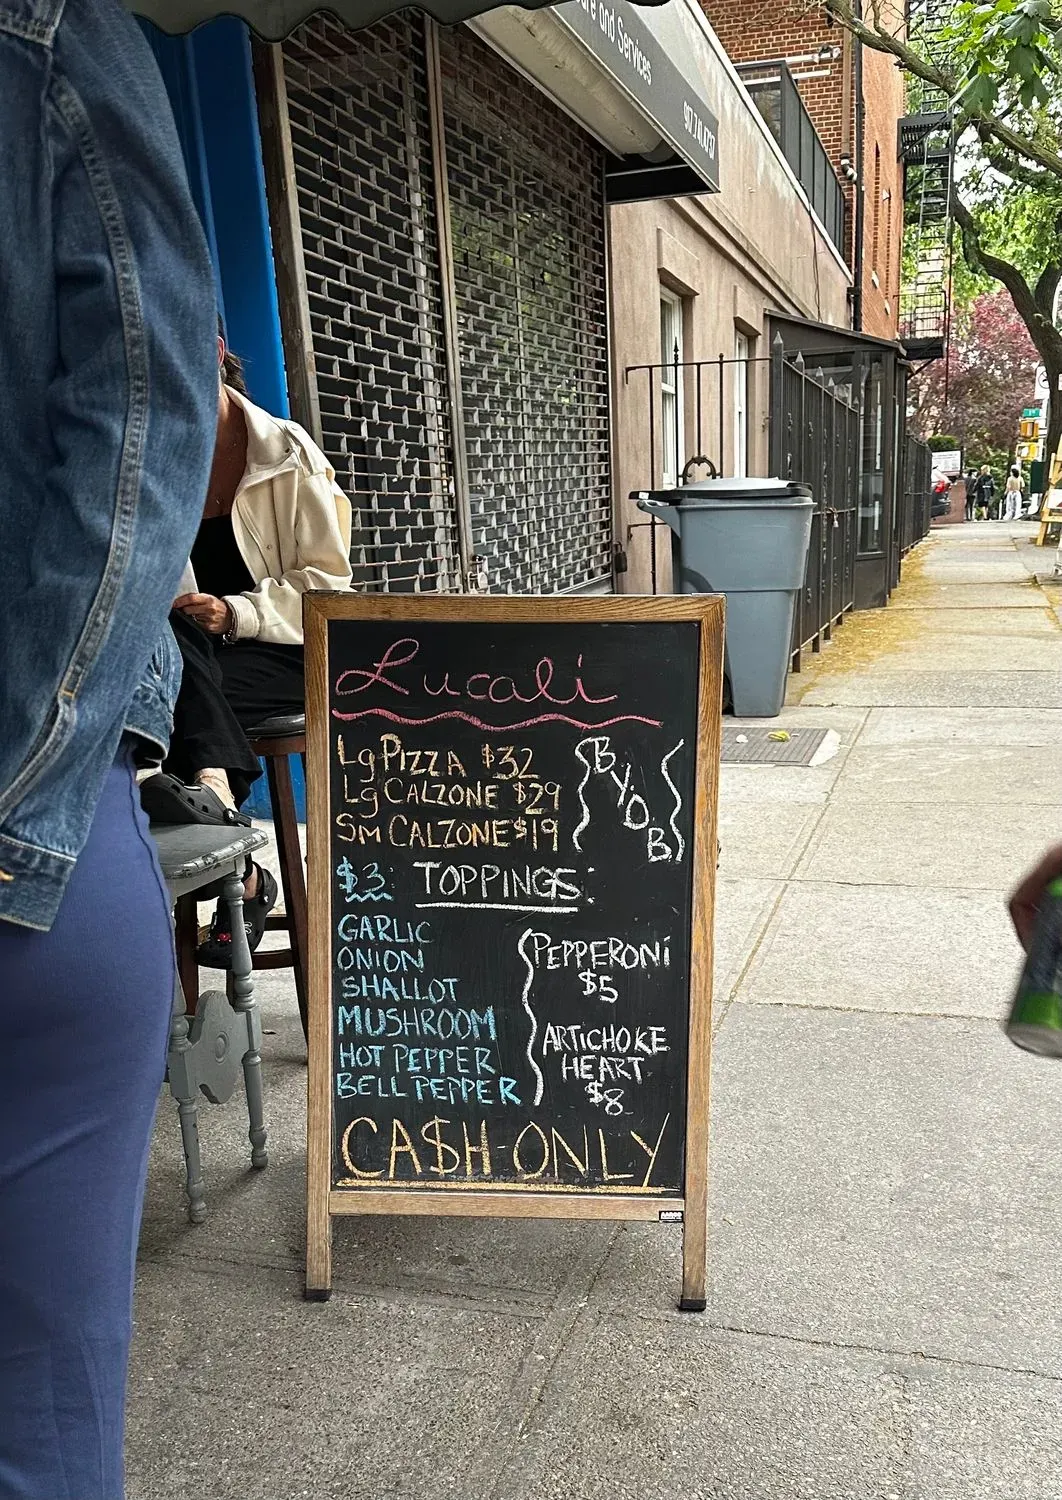 and Services
Lucali
Lg PIZZA $32
Lg CALZONE $29
Sm CALZONE $19
BYOB
$3: TOPPINGS:
GARLIC
ONION
SHALLOT
MUSHROOM
HOT PEPPER
BELL PEPPER
PEPPERONi
$5
ARTiCHOKE
HEART
$8
CA$H ONLY